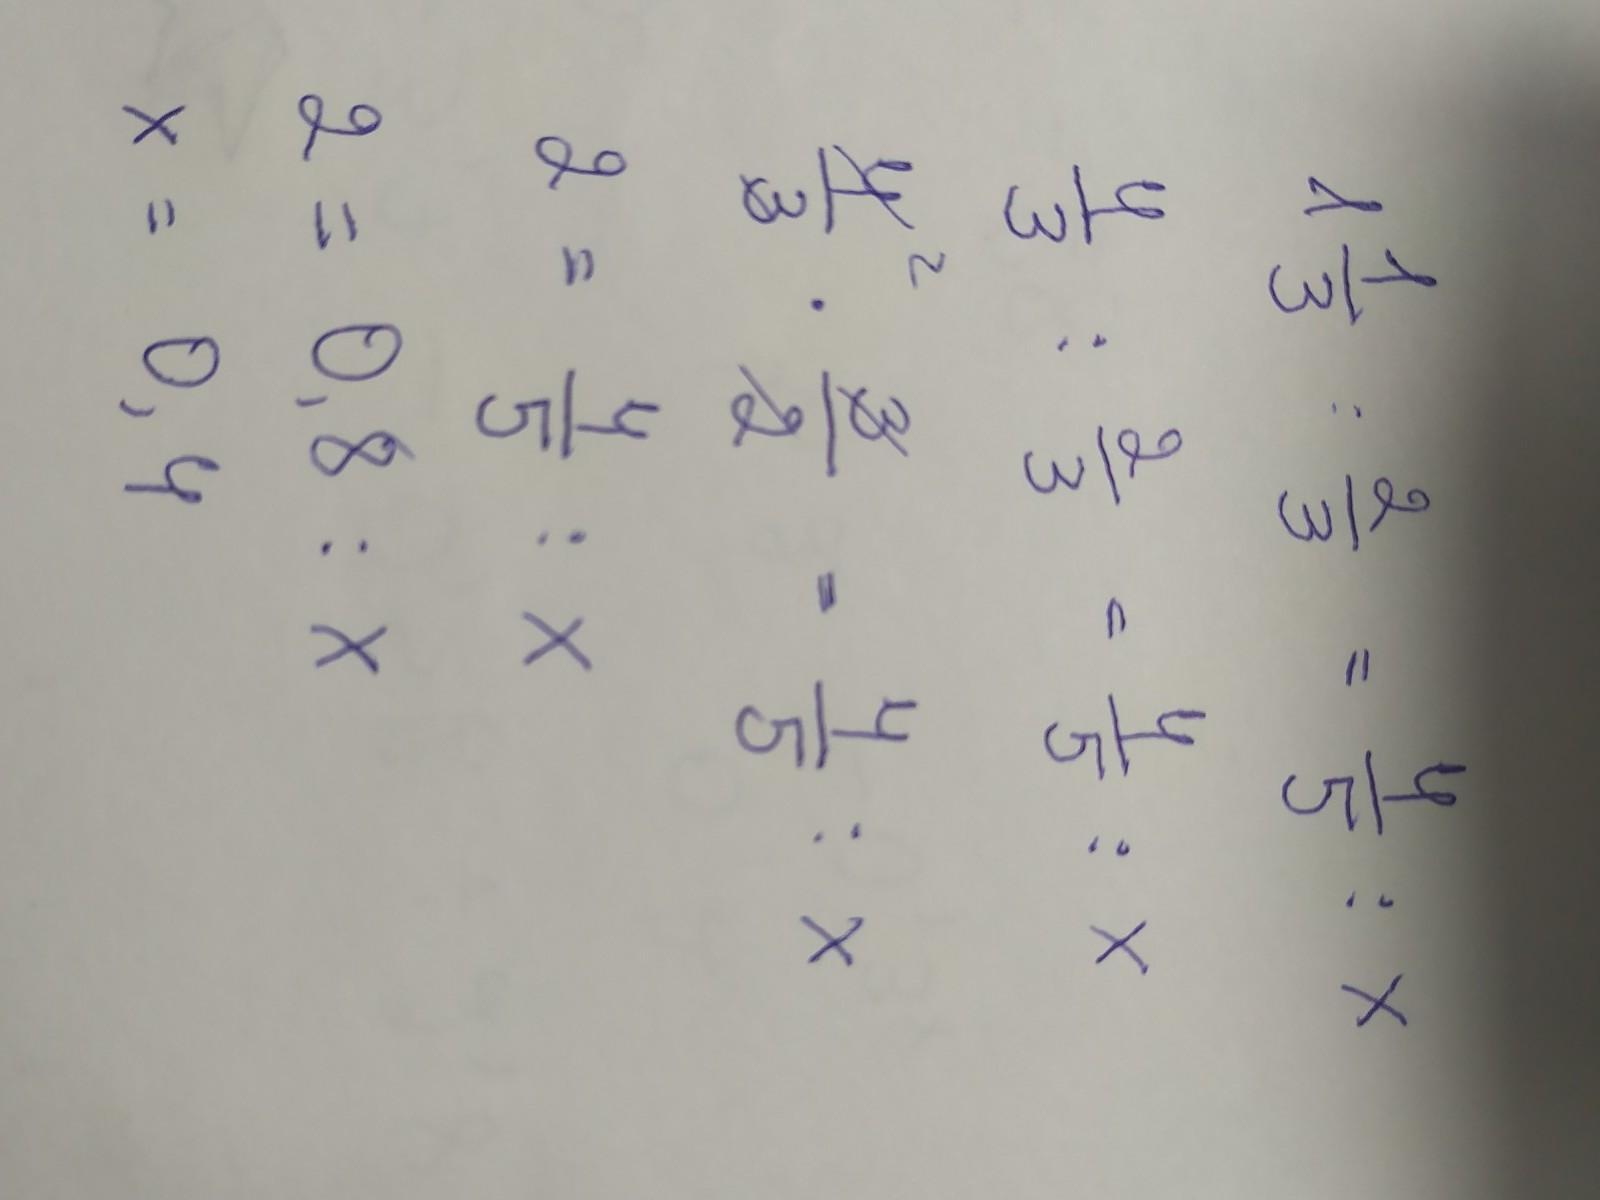 1 1/3 : 2/3 = 4/5 : x
4/3 : 2/3 = 4/5 : x
4/3 2 · 3/2 = 4/5 : x
2 = 4/5 : x
2 = 0,8 : x
x = 0,4